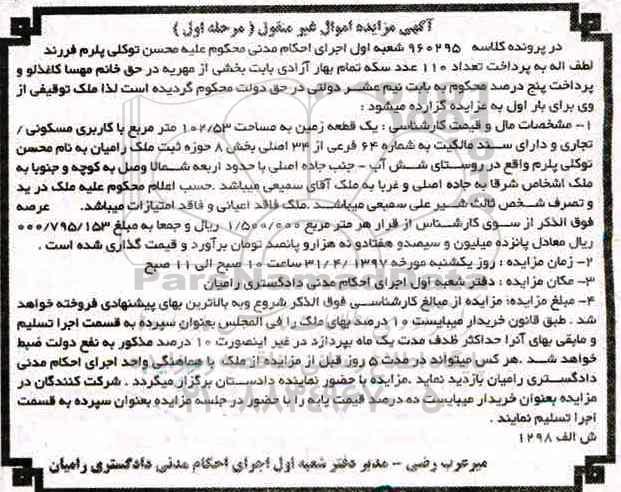 آگهی مزایده اموال غیر منقول ( مرحله اول )
در پرونده کلاسه ۹۶۰۲۹۵ شعبه اول اجرای احکام مدنی محکوم علیه محسن توکلی پلرم فررند
لطف اله به پرداخت تعداد ۱۱۰ عدد سکه تمام بهار آزادی بابت بخشی از مهریه در حق خانم مهسا کاغذلو و
پرداخت پنج درصد محکوم به بابت نیم عشر دولتی در حق دولت محکوم گردیده است لذا ملک توقیفی از
وی برای بار اول به مزایده گزارده میشود :
۱- مشخصات مال و قیمت کارشناسی : یک قطعه زمین به مساحت ۱۰۲/۵۳ متر مربع با کاربری مسکونی /
تجاری و دارای سند مالکیت به شماره ۶۴ فرعی از ۳۴ اصلی بخش ۸ حوزه ثبت ملک رامیان به نام محسن
توکلی پلرم واقع در روستای شش آب - جنب جاده اصلی با حدود اربعه شمالا وصل به کوچه و جنوبا به
ملک اشخاص شرقا به جاده اصلی و غربا به ملک آقای سمیعی میباشد .حسب اعلام محکوم علیه ملک در ید
و تصرف شخص ثالث شیر علی سمیعی میباشد .ملک فاقد اعیانی و فاقد امتیازات میباشد. عرصه
فوق الذکر از سوی کارشناس از قرار هر متر مربع ۱/۵۰۰/۰۰۰ ریال و جمعا به مبلغ ۰۰۰/۷۹۵/۱۵۳
ریال معادل پانزده میلیون و سیصدو هفتادو نه هزارو پانصد تومان برآورد و قیمت گذاری شده است .
۲- زمان مزایده : روز یکشنبه مورخه ۳۱/۴/۱۳۹۷ ساعت ۱۰ صبح الی ۱۱ صبح
۳- مکان مزایده : دفتر شعبه اول اجرای احکام مدنی دادگستری رامیان
۴- مبلغ مزایده: مزایده از مبالغ کارشناسی فوق الذکر شروع وبه بالاترین بهای پیشنهادی فروخته خواهد
شد . طبق قانون خریدار میبایست ۱۰ درصد بهای ملک را فی المجلس بعنوان سپرده به قسمت اجرا تسلیم
و مابقی بهای آنرا حداکثر ظدف مدت یک ماه بپردازد در غیر اینصورت ۱۰ درصد مذکور به نفع دولت ضبط
خواهد شد .هر کس میتواند در مدت ۵ روز قبل از مزایده از ملک با هماهنگی واحد اجرای احکام مدنی
دادگستری رامیان بازدید نماید .مزایده با حضور نماینده دادستان برگزار میگردد . شرکت کنندگان در
مزایده بعنوان خریدار میبایست ده درصد قیمت پایه را با حضور در جلسه مزایده بعنوان سپرده به قسمت
اجرا تسلیم نمایند .
ش الف ۱۲۹۸
میرعرب رضی - مدیر دفتر شعبه اول اجرای احکام مدنی دادگستری رامیان